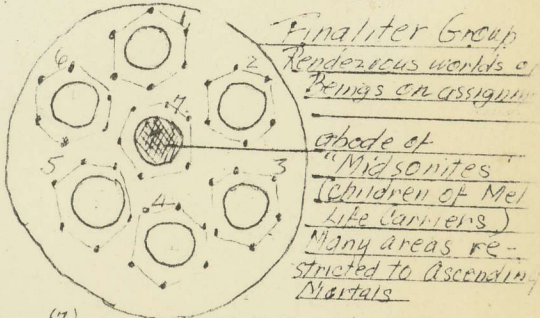 Finaliter Group
Rendezvous worlds o
Beings on assignm
abode of
"Midsonites"
(children of Mel
Life Carriers)
Many areas re-
stricted to Ascendin
Mortals
1
2
3
4
5
6
7
(7)